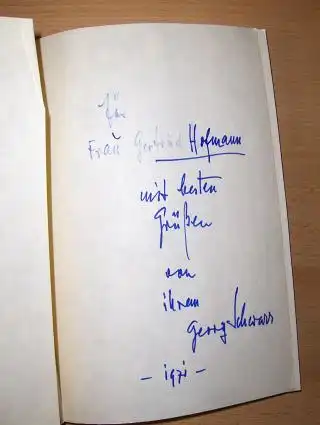 für
Frau Gertrud Hofmann
mit besten
Grüßen
von
ihrem
Georg Schwarz
- 1971 -